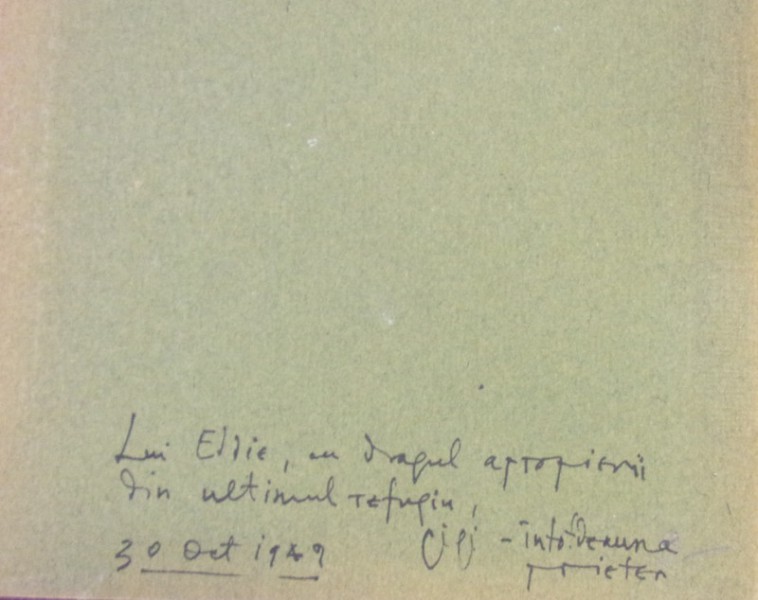 Lui Eddie, cu dragul apropierii
din ultimul refugiu,
30 Oct 1949 Gigi - întotdeauna
prieten